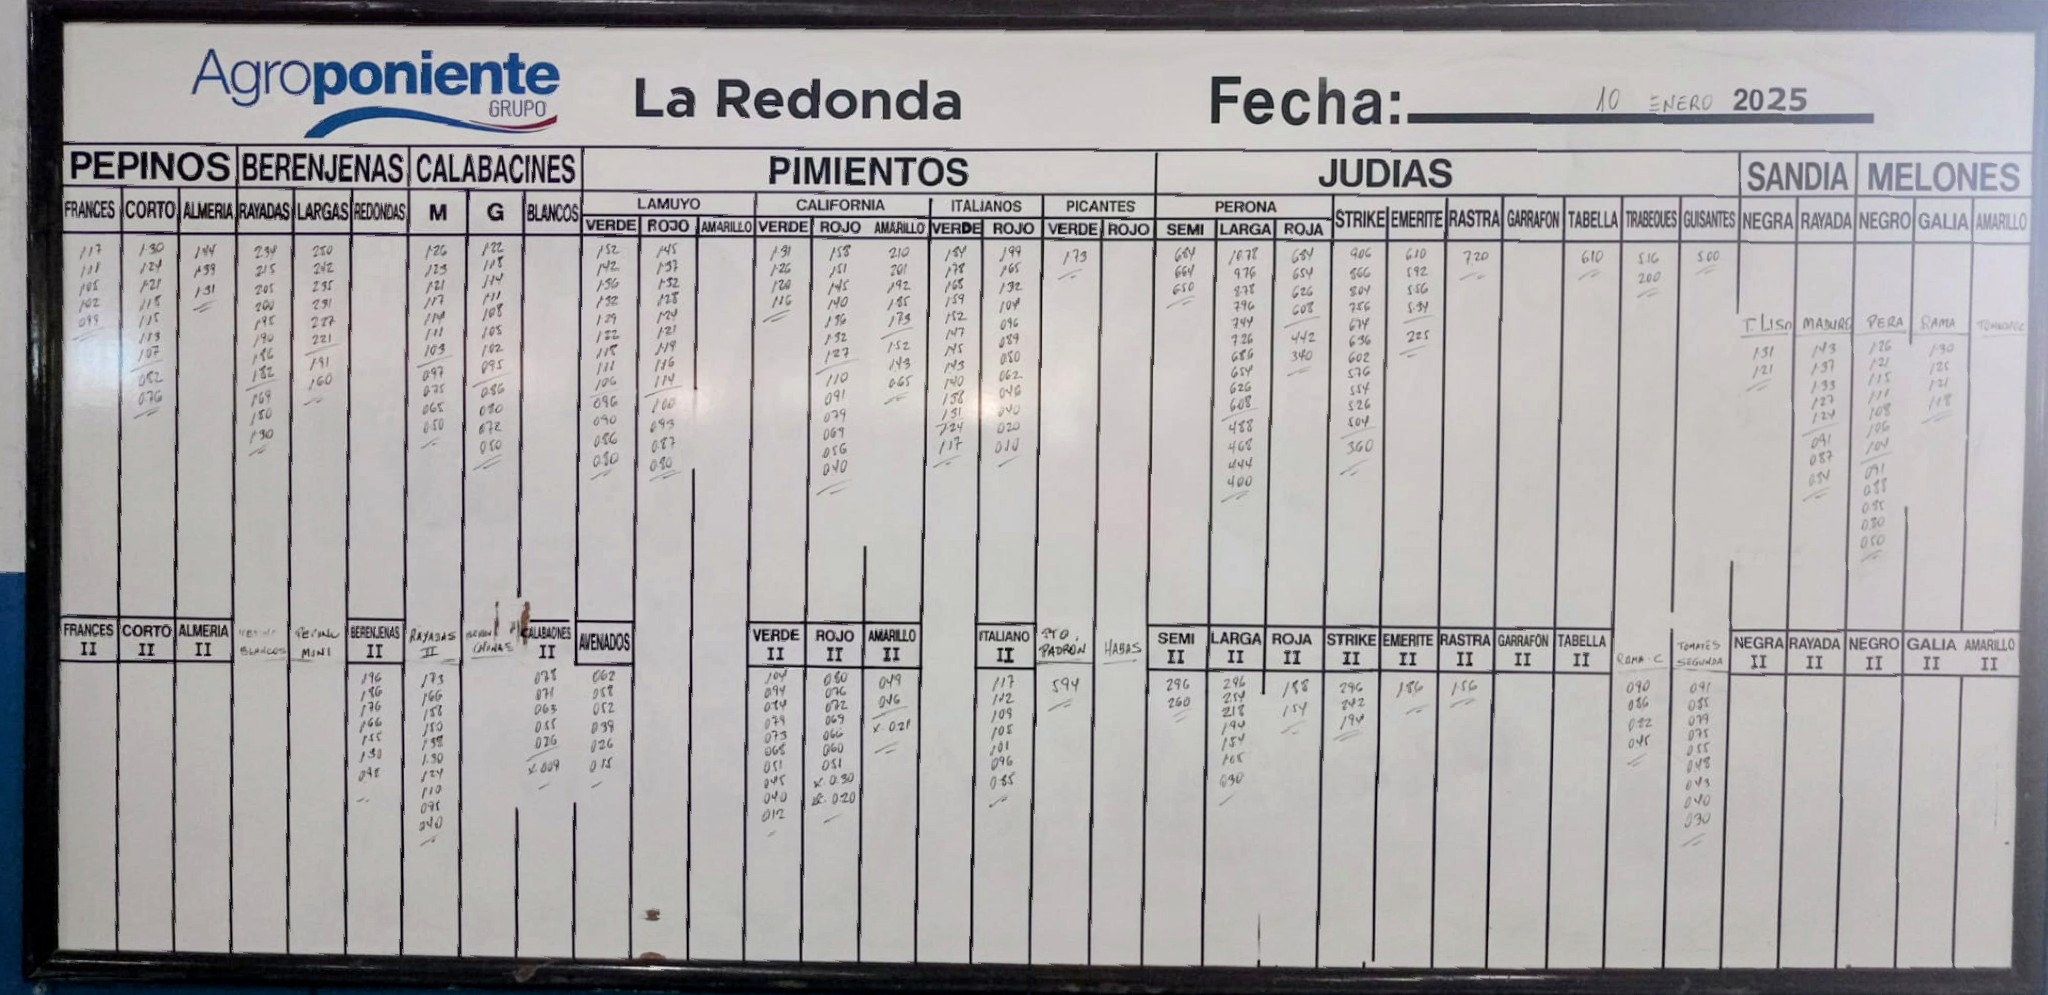 Agroponiente
GRUPO
La Redonda
Fecha: 10 ENERO 2025
PEPINOS BERENJENAS CALABACINES PIMIENTOS JUDIAS SANDIA MELONES
LAMUYO CALIFORNIA ITALIANOS PICANTES PERONA
FRANCES CORTO ALMERIA RAYADAS LARGAS REDONDAS M G BLANCOS VERDE ROJO AMARILLO VERDE ROJO AMARILLO VERDE ROJO VERDE ROJO SEMI LARGA ROJA STRIKE EMERITE RASTRA GARRAFON TABELLA TIRABEQUES GUISANTES NEGRA RAYADA NEGRO GALIA AMARILLO
117 130 144 234 250 126 122 152 145 131 158 210 184 199 173 684 1078 684 906 610 720 610 516 500
111 124 139 215 242 123 118 142 137 126 151 201 178 165 664 976 654 866 592 200
105 121 131 205 235 121 114 136 132 120 145 192 168 132 650 878 626 804 556
102 118 200 231 117 111 132 128 116 140 185 159 104 796 608 756 534
099 115 195 227 114 108 129 124 136 173 152 096 744 442 674 225
113 190 221 111 105 122 121 132 152 147 089 726 340 636
107 186 191 103 102 118 119 127 143 145 080 686 602
082 182 160 097 095 111 116 110 065 143 062 654 576
076 169 075 086 106 114 091 140 046 626 554
150 065 080 096 100 079 138 040 608 526
130 050 072 090 093 069 131 020 488 504
050 086 087 056 124 010 468 360
080 080 040 117 444
400
T. LISO MADURO PERA RAMA
131 143 126 130
121 137 121 125
133 115 121
127 111 118
124 108
091 106
087 104
084 091
088
085
080
050
FRANCES II CORTO II ALMERIA II BLANCOS PEPINO MINI BERENJENAS II RAYADAS II CHINAS CALABACINES II AVENADOS VERDE II ROJO II AMARILLO II ITALIANO II PTO. PADRON HABAS SEMI II LARGA II ROJA II STRIKE II EMERITE II RASTRA II GARRAFON II TABELLA II RAMA-C TOMATES SEGUNDA NEGRA II RAYADA II NEGRO II GALIA II AMARILLO II
196 173 078 062 104 080 049 117 594 296 296 188 296 186 156 090 091
186 166 071 058 094 076 046 112 260 254 154 242 086 085
176 158 063 052 084 072 x.021 109 218 194 082 079
166 150 055 039 079 069 105 194 045 075
155 138 026 026 073 066 101 154 055
130 130 x.009 015 068 060 096 105 048
098 124 051 051 085 090 043
110 045 x.030 040
095 040 x.020 030
040 012